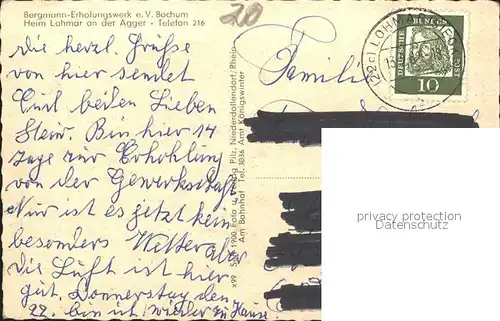 Bergmann-Erholungswerk e. V. Bochum
Heim Lohmar an der Agger - Telefon 216
20
die herzl. Grüße
von hier sendet
Euch beiden Lieben
Bin hier 14
Tage zur Erhohlung
von der Gewerkschaft
Nur ist es jetzt kein
besonders Wetter aber
die Luft ist hier
gut. Donnerstag den
22. bin ich wieder zu Hause
Familie
LOHMAR
DEUTSCHE BUNDESPOST
10
Foto u. Verlag Pilz, Niederdollendorf/Rhein
Am Bahnhof Tel. 3036 Amt Königswinter
privacy protection
Datenschutz